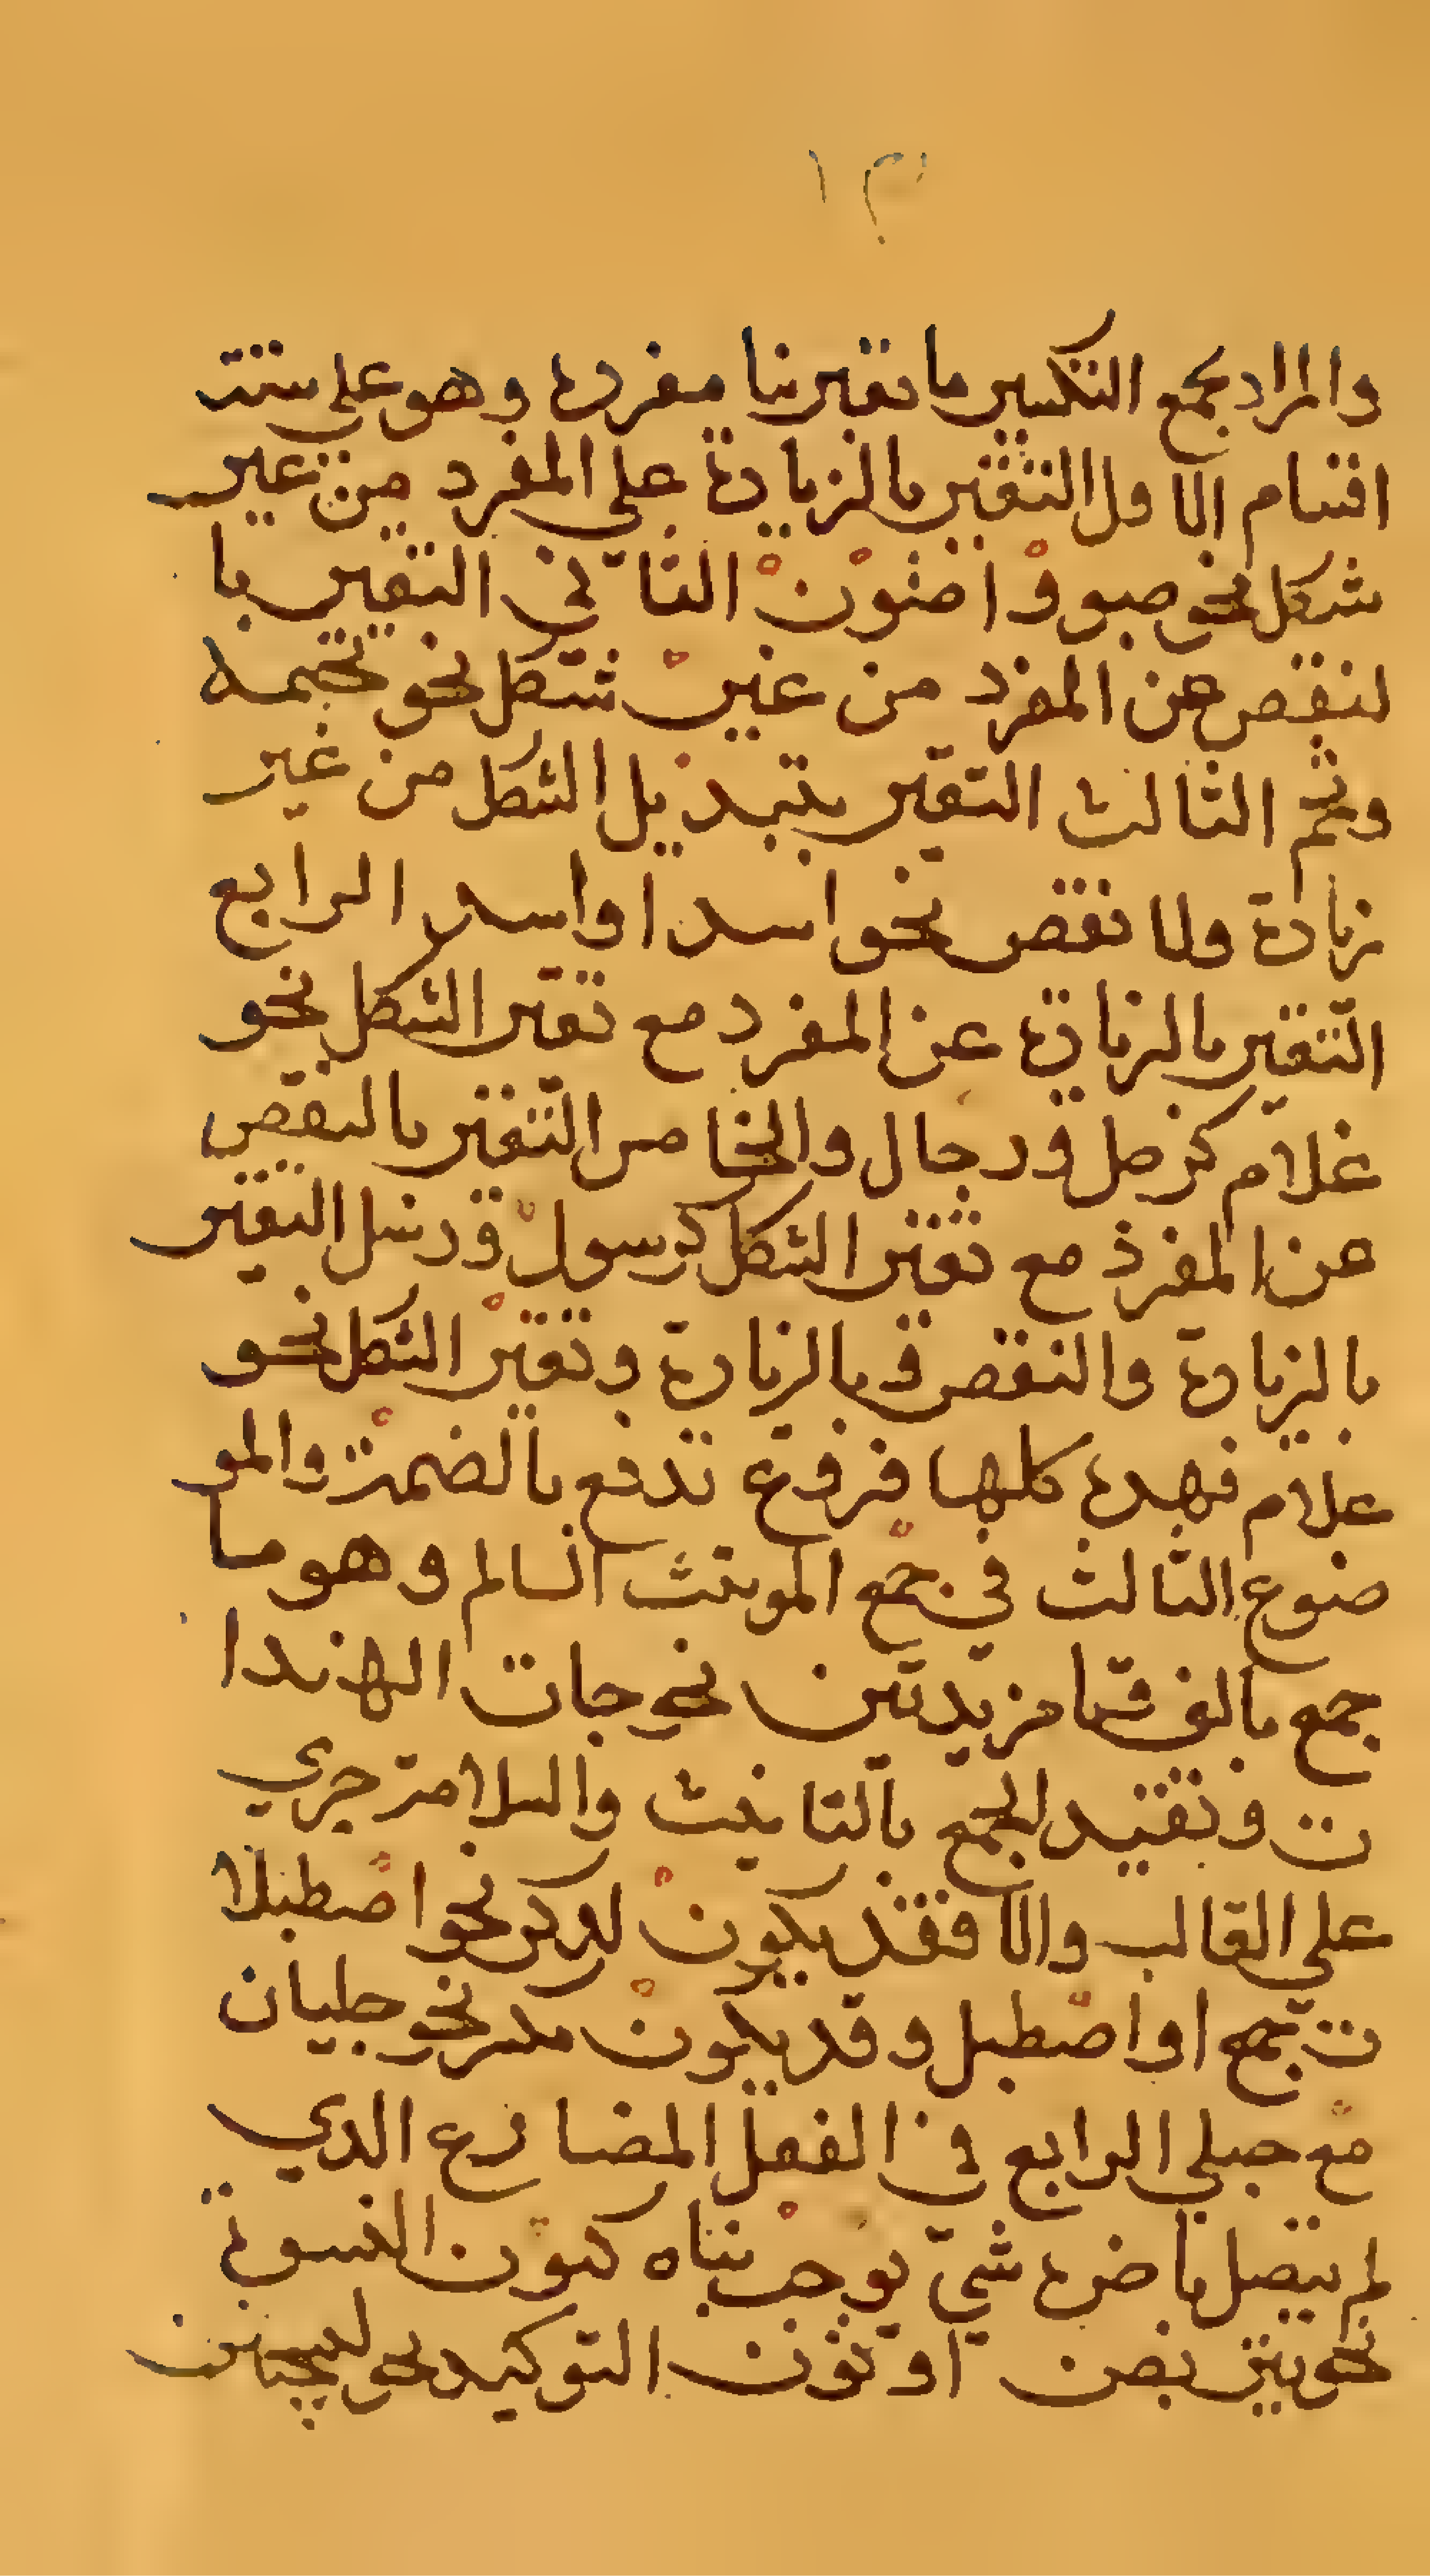 ١٣
والمراد بجمع التكسير ما تغير بنا مفرده وهو على ستة
اقسام الاول التغير بالزيادة على المفرد من غير
شكل نحو صبو و اصنون الثاني التغير با
لنقص عن المفرد من غير شكل نحو تخمة
وتخم الثالث التغير بتبديل الشكل من غير
زيادة ولا نقص نحو اسد او اسد الرابع
التغير بالزيادة عن المفرد مع تغير الشكل نحو
غلام كرجل ورجال والخامس التغير بالنقص
عن المفرد مع تغير الشكل كرسول ورسل التغير
بالزيادة والنقص و بالزيادة وتغير الشكل نحو
غلام فهده كلها فروع تدفع بالضمة والمو
ضوع الثالث في جمع المونث السالم وهو ما
جمع بالف وتا مزيدتين نحو جات الهندا
ت وتقيد الجمع بالتانيث والسلامة جري
على الغالب والا فقد يكون لدكر نحو اصطبلا
ت جمع او اصطبل وقد يكون مكسر نحو حبليان
مع حبلى الرابع في الفعل المضارع الدي
لم يتصل باخره شي يوجب بناه كنون النسوة
نحو يتربصن او نون التوكيد نحو ليسجنن